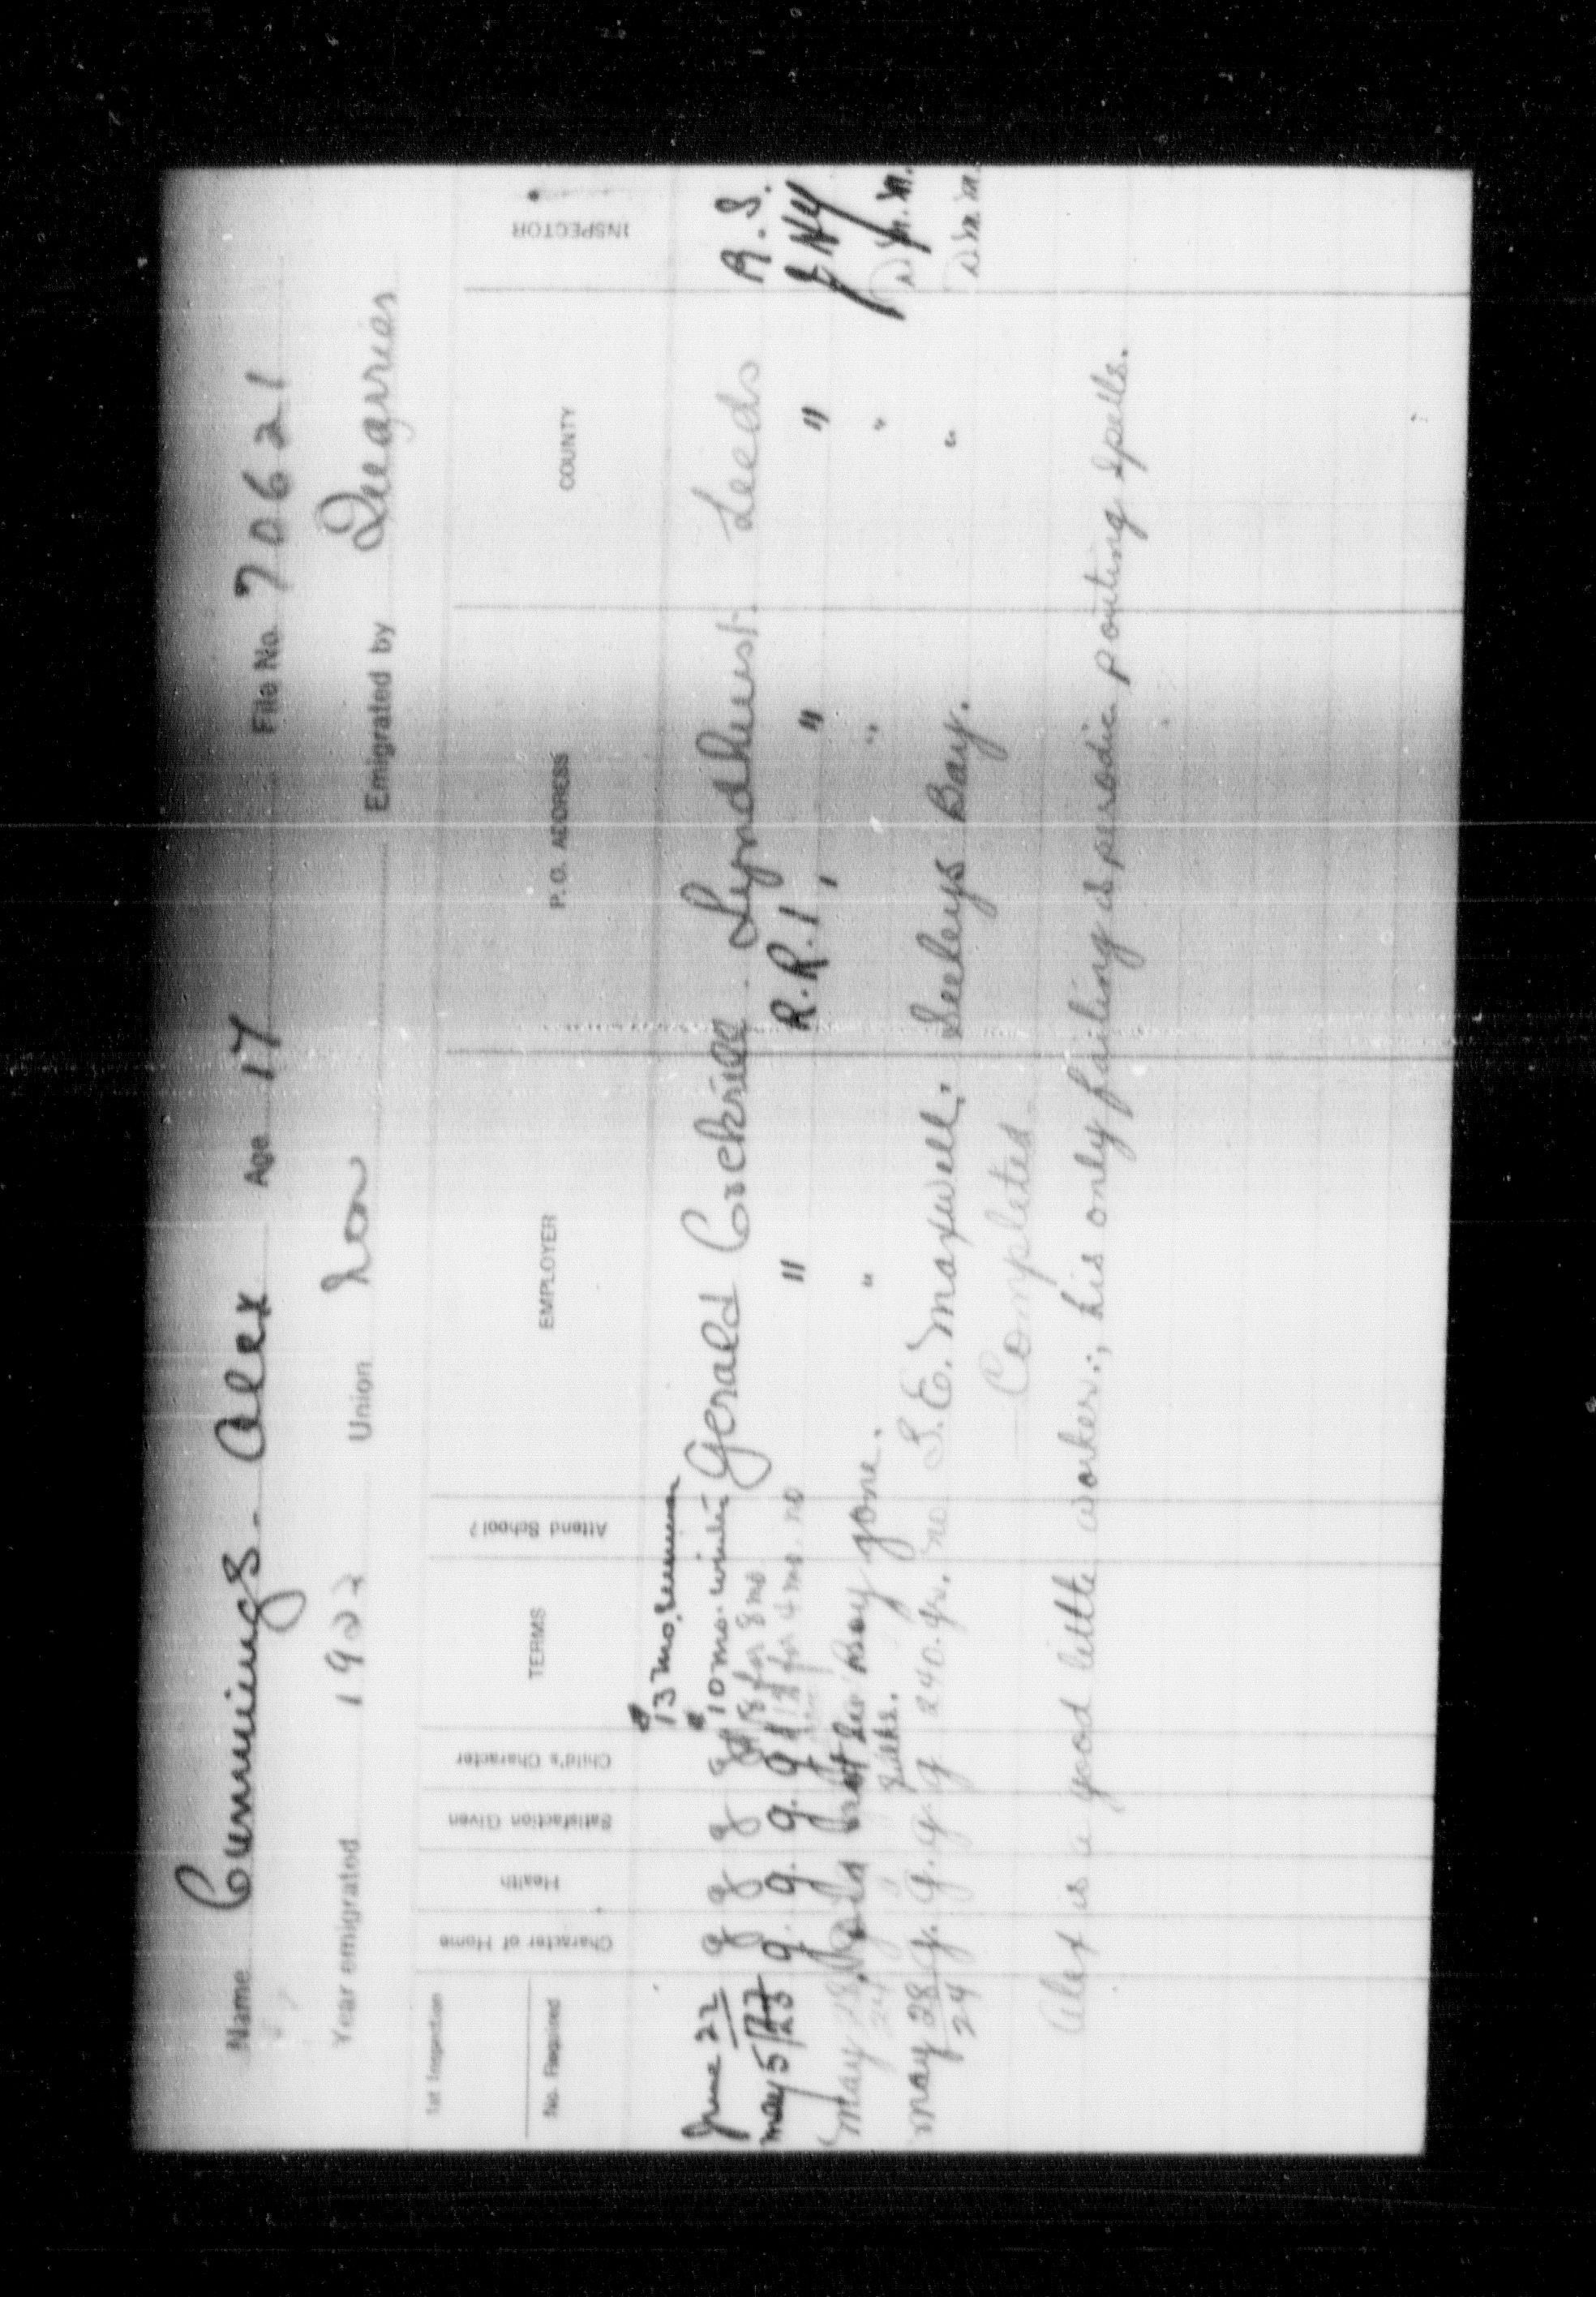 Name Cummings - Alex Age 17 File No. 70621
Year emigrated 1922 Union non Emigrated by Quarrier
1st Inspection
No. Required
Character of Home
Health
Satisfaction Given
Child's Character
TERMS
Attend School?
EMPLOYER
P. O. ADDRESS
COUNTY
INSPECTOR
13 mo. summer
June 22 g g g g 10 mo. winter Gerald Cockrill. Lyndhurst. Leeds R. S.
18 for 8 mo.
May 5/23 g. g. g. g 12 for 4 mo. no " R. R. 1, " "
May 28 24 boy gone. " " "
May 28 24 g. g. g. g 240. yr. no S. E. Maxwell. Seeleys Bay. "
Completed.
Alex is a good little worker., his only failing is perodic pouting spells.